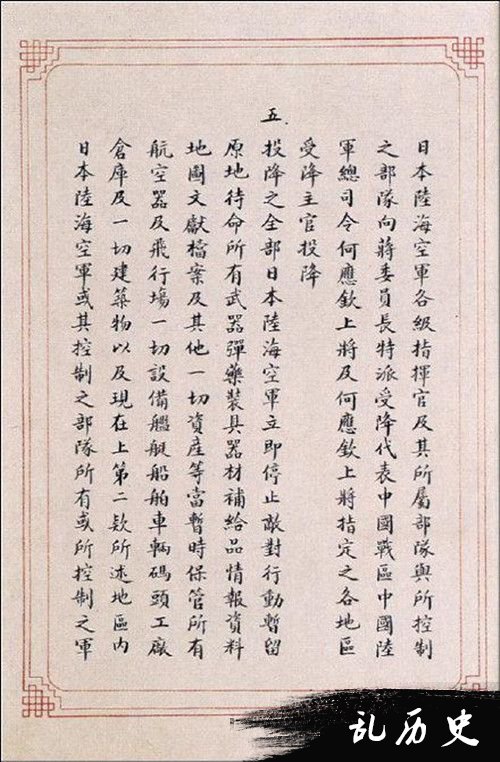 日本陸海空軍各級指揮官及其所屬部隊與所控制
之部隊向蔣委員長特派受降代表中國戰區中國陸
軍總司令何應欽上將及何應欽上將指定之各地區
受降主官投降
五.
投降之全部日本陸海空軍立即停止敵對行動暫留
原地待命所有武器彈藥裝具器材補給品情報資料
地圖文獻檔案及其他一切資產等當暫時保管所有
航空器及飛行場一切設備艦艇船舶車輛碼頭工廠
倉庫及一切建築物以及現在上第二欵所述地區内
日本陸海空軍或其控制之部隊所有或所控制之軍
乱历史